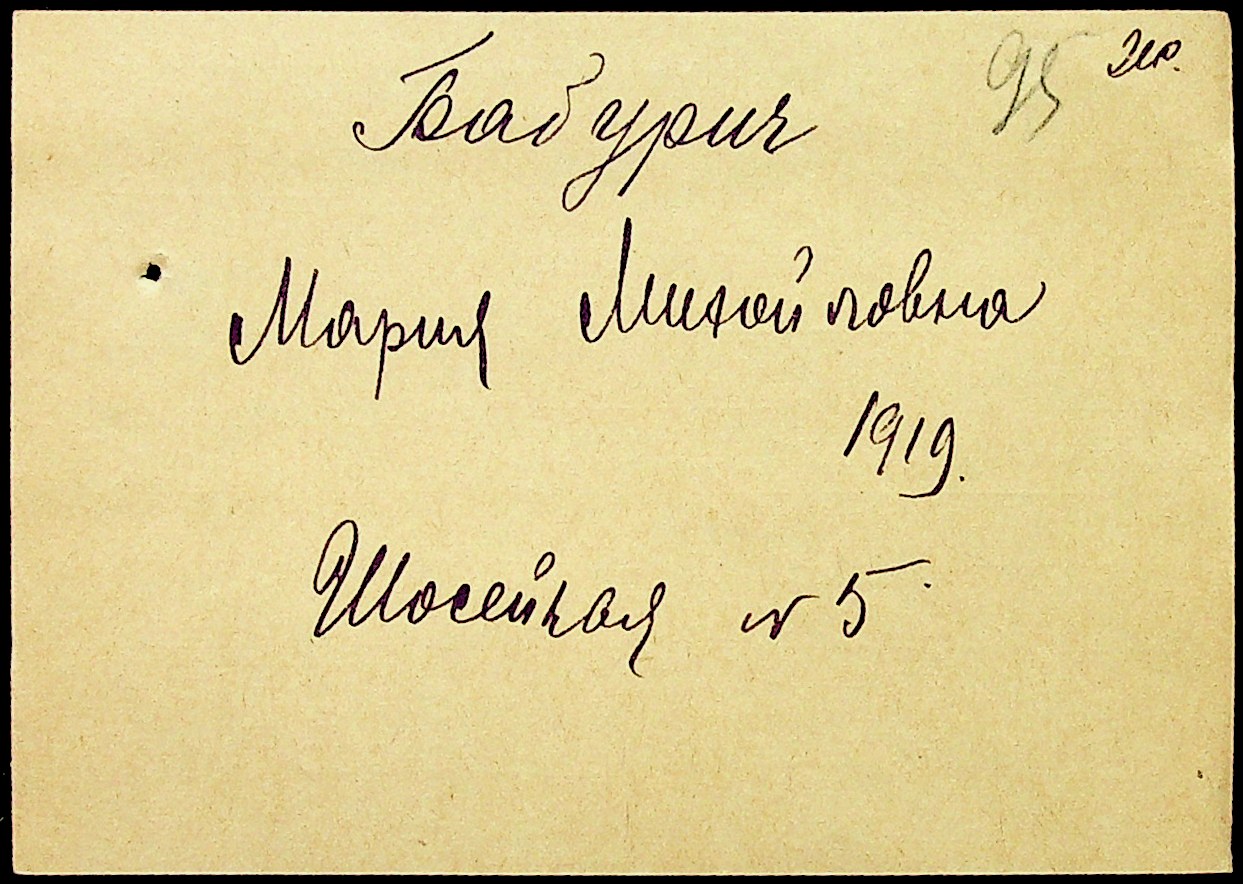 95
Бабурич
Мария Михайловна
1919.
Шосейная № 5